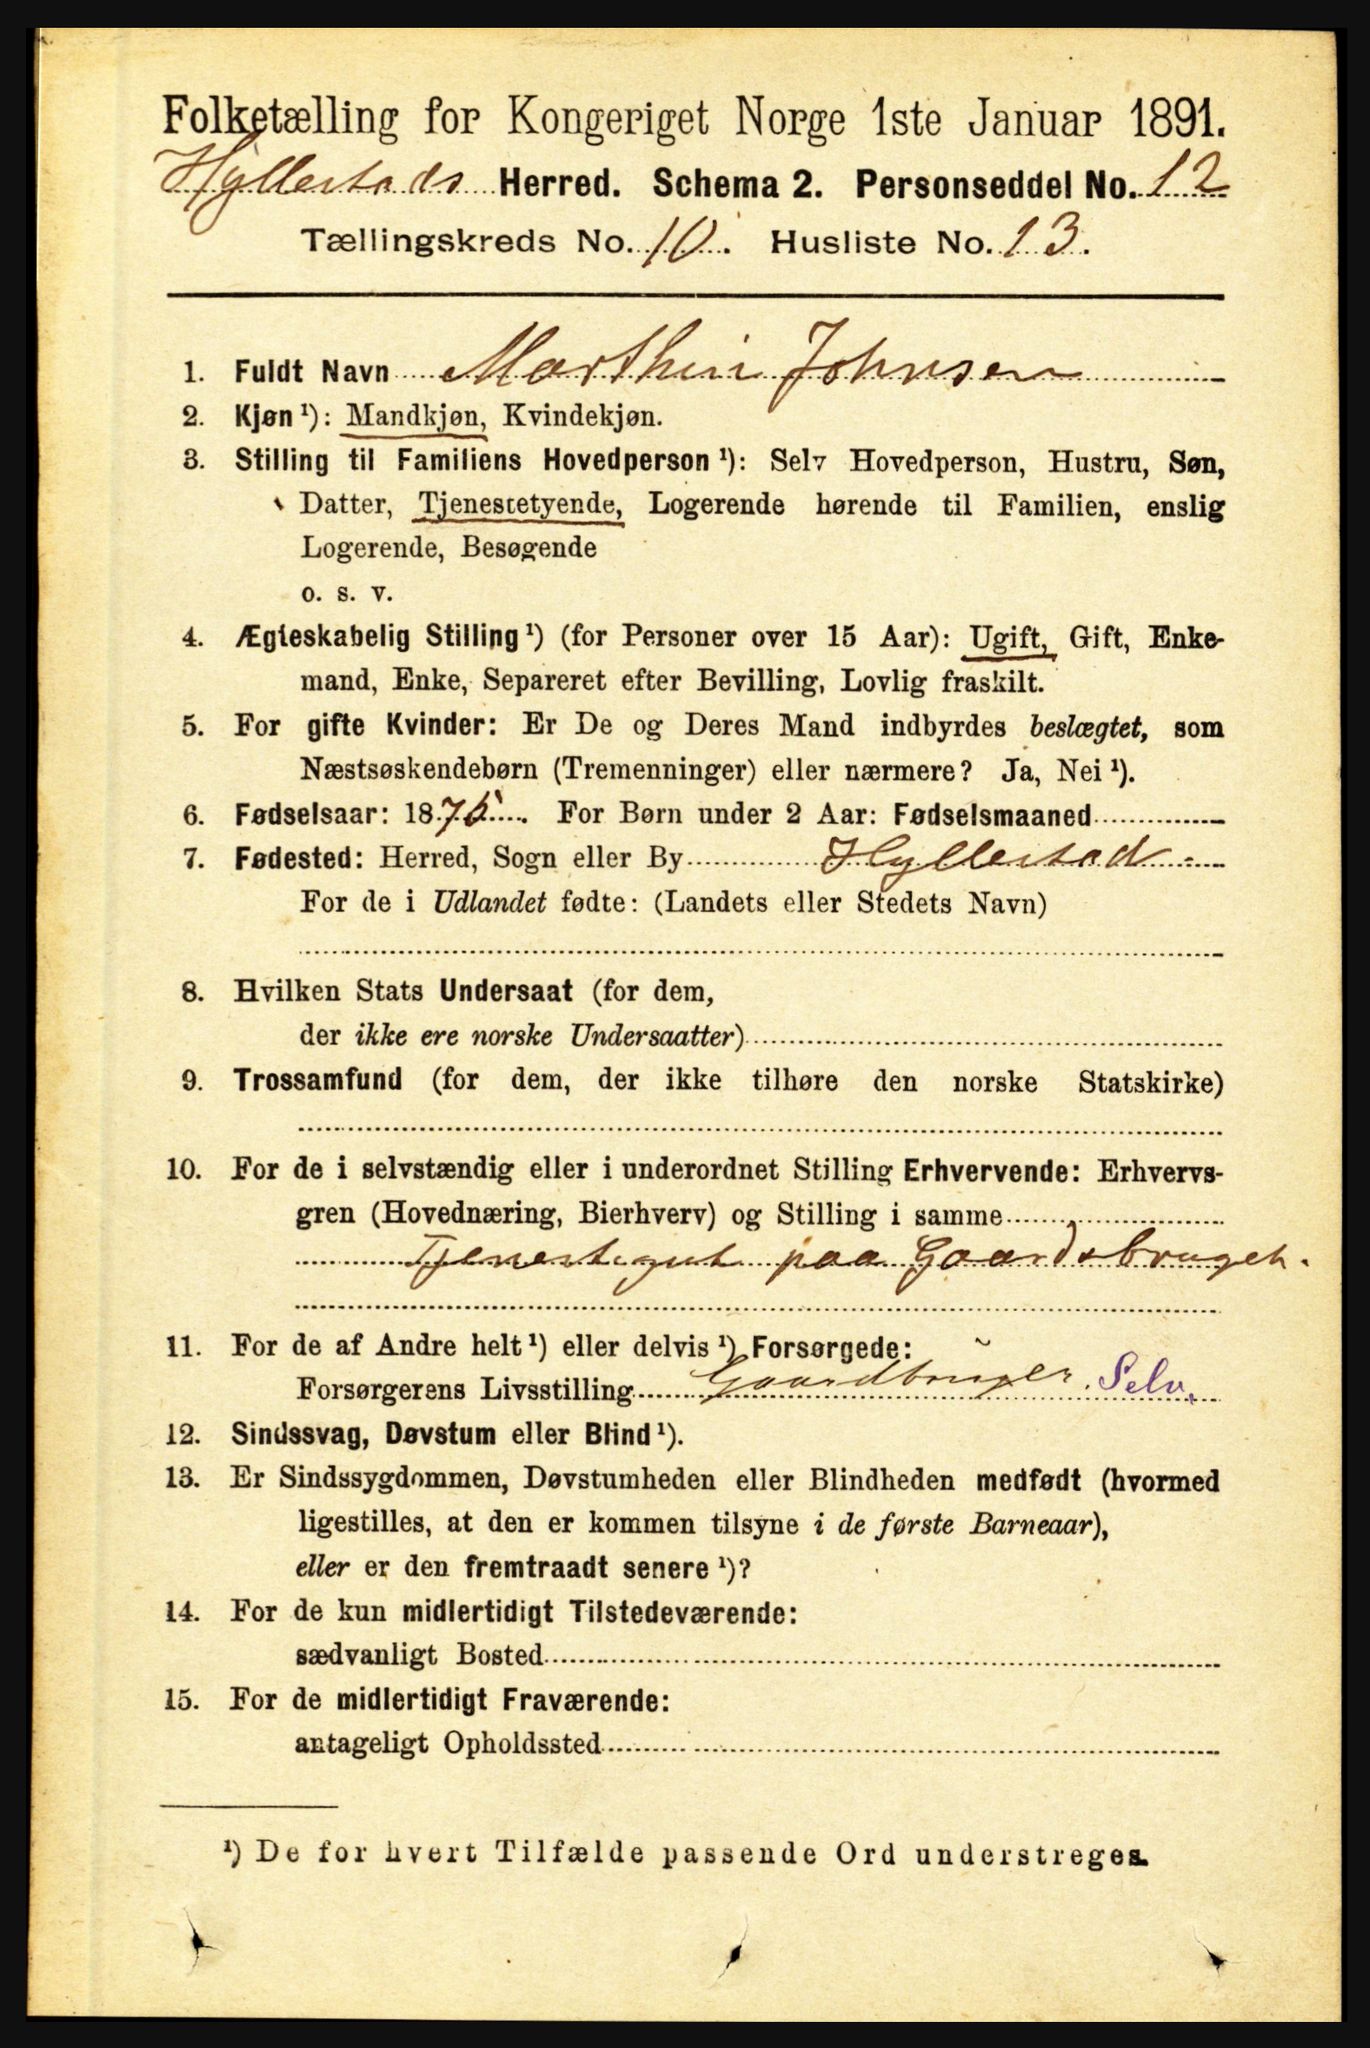 Folketælling for Kongeriget Norge 1ste Januar 1891.
Hyllestads Herred. Schema 2. Personseddel No. 12
Tællingskreds No. 10. Husliste No. 13.
1. Fuldt Navn Marthin Johnsen
2. Kjøn ¹): Mandkjøn, Kvindekjøn.
3. Stilling til Familiens Hovedperson ¹): Selv Hovedperson, Hustru, Søn,
Datter, Tjenestetyende, Logerende hørende til Familien, enslig
Logerende, Besøgende
o. s. v.
4. Ægteskabelig Stilling ¹) (for Personer over 15 Aar): Ugift, Gift, Enke-
mand, Enke, Separeret efter Bevilling, Lovlig fraskilt.
5. For gifte Kvinder: Er De og Deres Mand indbyrdes beslægtet, som
Næstsøskendebørn (Tremenninger) eller nærmere? Ja, Nei ¹).
6. Fødselsaar: 1875. For Børn under 2 Aar: Fødselsmaaned
7. Fødested: Herred, Sogn eller By Hyllestad
For de i Udlandet fødte: (Landets eller Stedets Navn)
8. Hvilken Stats Undersaat (for dem,
der ikke ere norske Undersaatter)
9. Trossamfund (for dem, der ikke tilhøre den norske Statskirke)
10. For de i selvstændig eller i underordnet Stilling Erhvervende: Erhvervs-
gren (Hovednæring, Bierhverv) og Stilling i samme
Tjenestegut paa Gaardsbruget.
11. For de af Andre helt ¹) eller delvis ¹) Forsørgede:
Forsørgerens Livsstilling Gaardbruger. Selv.
12. Sindssvag, Døvstum eller Blind ¹).
13. Er Sindssygdommen, Døvstumheden eller Blindheden medfødt (hvormed
ligestilles, at den er kommen tilsyne i de første Barneaar),
eller er den fremtraadt senere ¹)?
14. For de kun midlertidigt Tilstedeværende:
sædvanligt Bosted
15. For de midlertidigt Fraværende:
antageligt Opholdssted
¹) De for hvert Tilfælde passende Ord understreges.